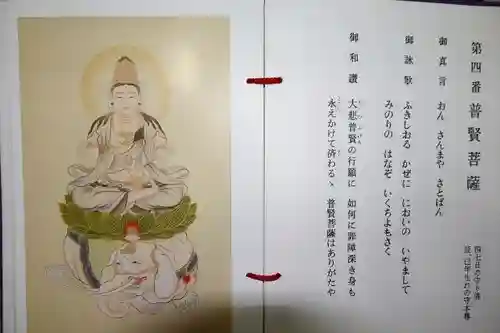 第四番 普賢菩薩
四七日の守り佛
辰、巳年生れの守本尊
御真言 おん さんまや さとばん
御詠歌 ふきしおる かぜに においの いやまして
みのりの はなぞ いくちよもさく
御和讃 大悲普賢の行願に 如何に罪障深き身も
永えかけて済わるゝ 普賢菩薩はありがたや